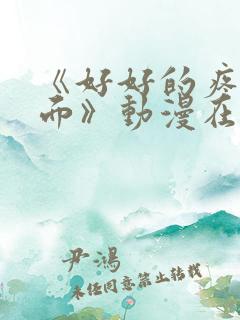 《好好的疼
而》動漫在
尹鴻
未经同意禁止转载